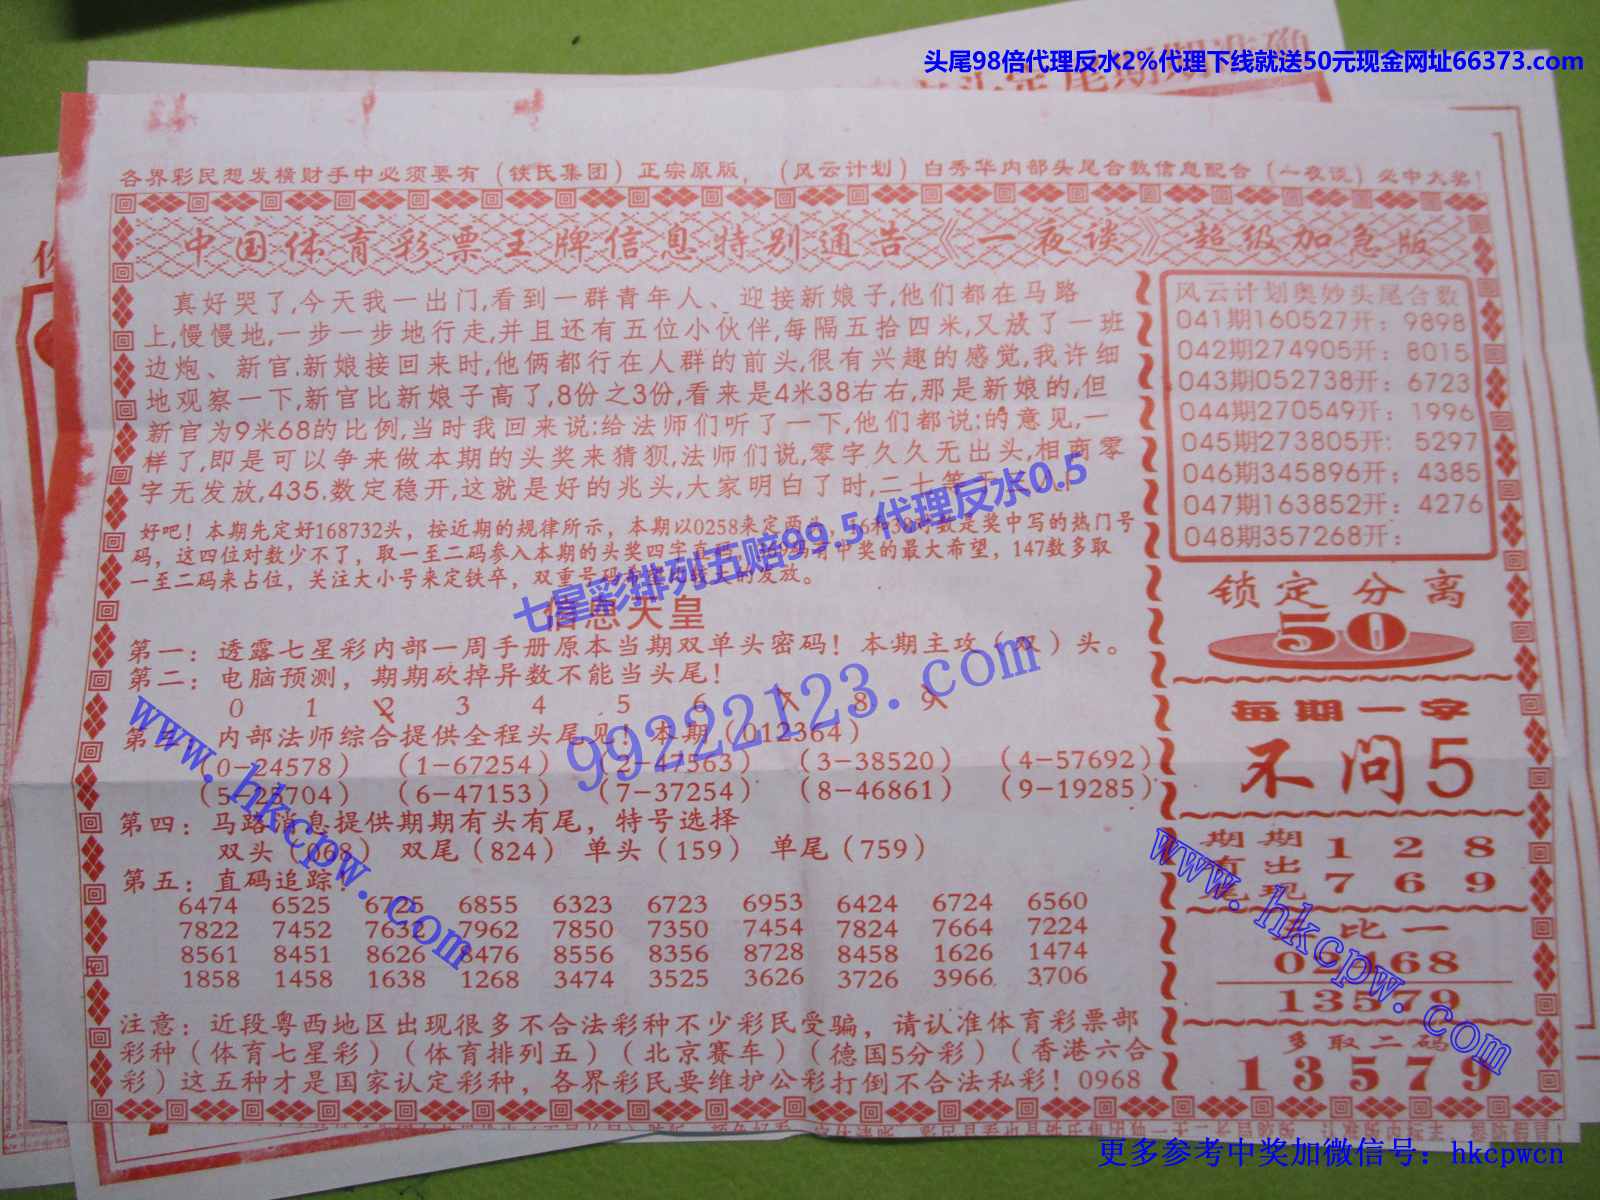 头尾98倍代理反水2%代理下线就送50元现金网址66373.com
各界彩民想发横财手中必须要有（铁氏集团）正宗原版，（风云计划）白秀华内部头尾合数信息配合（一夜谈）必中大奖！
中国体育彩票王牌信息特别通告《一夜谈》超级加急版
真好哭了,今天我一出门,看到一群青年人、迎接新娘子,他们都在马路
上,慢慢地,一步一步地行走,并且还有五位小伙伴,每隔五拾四米,又放了一班
边炮、新官.新娘接回来时,他俩都行在人群的前头,很有兴趣的感觉,我许细
地观察一下,新官比新娘子高了,8份之3份,看来是4米38右右,那是新娘的,但
新官为9米68的比例,当时我回来说:给法师们听了一下,他们都说:的意见,一
样了,即是可以争来做本期的头奖来猜狈,法师们说,零字久久无出头,相商零
字无发放,435.数定稳开,这就是好的兆头,大家明白了时,二十等于
好吧！本期先定好168732头，按近期的规律所示，本期以0258来定两头，16和38两数是奖中写的热门号
码，这四位对数少不了，取一至二码参入本期的头奖四字真码，有中奖的最大希望，147数多取
一至二码来占位，关注大小号来定铁卒，双重号码的发放。
七星彩排列五赔99.5 代理反水0.5
信息天皇
第一：透露七星彩内部一周手册原本当期双单头密码！本期主攻（双）头。
第二：电脑预测，期期砍掉异数不能当头尾！
0 1 2 3 4 5 6 7 8 9
第三：内部法师综合提供全程头尾见！本期（012364）
（0-24578）（1-67254）（2-47563）（3-38520）（4-57692）
（5-23704）（6-47153）（7-37254）（8-46861）（9-19285）
第四：马路消息提供期期有头有尾，特号选择
双头（068）双尾（824）单头（159）单尾（759）
第五：直码追踪
6474 6525 6725 6855 6323 6723 6953 6424 6724 6560
7822 7452 7632 7962 7850 7350 7454 7824 7664 7224
8561 8451 8626 8476 8556 8356 8728 8458 1626 1474
1858 1458 1638 1268 3474 3525 3626 3726 3966 3706
注意：近段粤西地区出现很多不合法彩种不少彩民受骗，请认准体育彩票部
彩种（体育七星彩）（体育排列五）（北京赛车）（德国5分彩）（香港六合
彩）这五种才是国家认定彩种，各界彩民要维护公彩打倒不合法私彩！0968
风云计划奥妙头尾合数
041期160527开：9898
042期274905开：8015
043期052738开：6723
044期270549开：1996
045期273805开：5297
046期345896开：4385
047期163852开：4276
048期357268开：
锁定分离
50
每期一字
不问5
期期 1 2 8
直出
尾现 7 6 9
比一
02468
13579
多取二码
13579
99222123.com
www.hkcpw.com
www.hkcpw.com
更多参考中奖加微信号：hkcpwcn